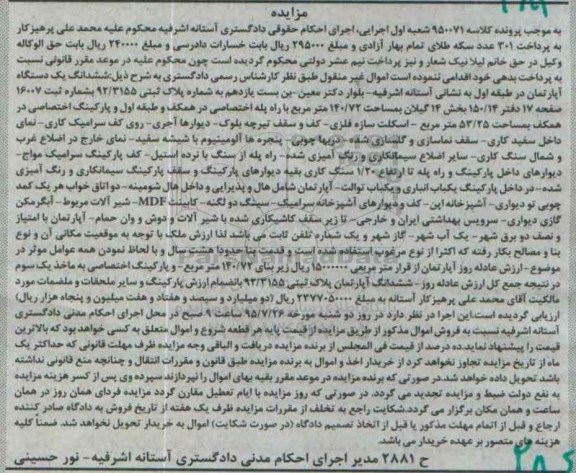 ۲۸۸۱
مزایده
به موجب پرونده کلاسه ۹۵۰۰۷۱ شعبه اول اجرایی، اجرای احکام حقوقی دادگستری آستانه اشرفیه محکوم علیه محمد علی پرهیزکار
به پرداخت ۳۰۱ عدد سکه طلای تمام بهار آزادی و مبلغ ۲۹۵۰۰۰ ریال بابت خسارات دادرسی و مبلغ ۲۴۰۰۰۰ ریال بابت حق الوکاله
وکیل در حق خانم لیلا نیک شعار و نیز پرداخت نیم عشر دولتی محکوم گردیده است چون محکوم علیه در موعد مقرر قانونی نسبت
به پرداخت بدهی خود اقدامی ننموده است اموال غیر منقول طبق نظر کارشناس رسمی دادگستری به شرح ذیل:ششدانگ یک دستگاه
آپارتمان در طبقه اول به نشانی آستانه اشرفیه- بلوار دکتر معین-بن بست یازدهم به شماره پلاک ثبتی ۹۲/۳۱۵۵ بشماره ثبت ۱۶۰۰۷
صفحه ۱۷ دفتر ۱۵۰/۱۴ بخش ۱۴ گیلان بمساحت ۱۴۰/۷۲ متر مربع با راه پله اختصاصی در همکف و طبقه اول و پارکینگ اختصاصی در
همکف بمساحت ۵۳/۲۵ متر مربع - اسکلت سازه فلزی- کف و سقف تیرچه بلوک- دیوارها آجری- روی کف سرامیک کاری- نمای
داخل سفید کاری- سقف نماسازی و گلسازی شده- دربها چوبی- پنجره ها آلومینیوم با شیشه سفید- نمای خارج در اضلاع غرب
و شمال سنگ کاری- سایر اضلاع سیمانکاری و رنگ آمیزی شده- راه پله از سنگ با نرده استیل- کف پارکینگ سرامیک مواج-
دیوارهای داخل پارکینگ و راه پله تا ارتفاع ۱/۲۰ سنگ کاری بقیه دیوارهای پارکینگ و سقف پارکینگ سیمانکاری و رنگ آمیزی
شده- در داخل پارکینگ یکباب انباری و یکباب توالت- آپارتمان شامل هال و پذیرایی و داخل هال شومینه- دو اتاق خواب هر یک کمد
چوبی تو دیواری- آشپزخانه اپن- کف و دیوارهای آشپزخانه سرامیک- سینگ دو لگنه- کابینت MDF- شیر آلات مربوط- آبگرمکن
گازی دیواری- سرویس بهداشتی ایران و خارجی- تا زیر سقف کاشیکاری شده با شیر آلات و دوش و وان حمام- آپارتمان با امتیاز
و نصف دو برق شهر- یک آب شهر- گاز شهر و یک شماره تلفن ثابت می باشد لذا ارزش ملک با توجه به موقعیت مکانی آن و نوع
بنا و مصالح بکار رفته که اکثرا از نوع مرغوب استفاده شده است و قدمت بنا حدودا هشت سال و با لحاظ نمودن همه عوامل موثر در
موضوع- ارزش عادله روز آپارتمان از قرار متر مربعی ۱۵۰۰۰۰۰۰ ریال زیر بنای ۱۴۰/۷۲ متر مربع- و پارکینگ اختصاصی به ماخذ یک سوم
در نتیجه جمع کل ارزش عادله روز- ششدانگ آپارتمان پلاک ثبتی ۹۲/۳۱۵۵ بانضمام ارزش پارکینگ و سایر ملحقات و ملضمات مورد
مالکیت آقای محمد علی پرهیزکار آستانه به مبلغ ۲۳۷۷۰۵۰۰۰۰ ریال (دو میلیارد و سیصد و هفتاد و هفت میلیون و پنجاه هزار ریال)
ارزیابی گردیده است.این اجرا در نظر دارد در روز دو شنبه مورخه ۹۵/۷/۲۶ ساعت ۹ صبح در محل اجرای احکام مدنی دادگستری
آستانه اشرفیه نسبت به فروش اموال مذکور از طریق مزایده از قیمت پایه هر قطعه شروع و اموال متعلق به کسی خواهد بود که بالاترین
قیمت را پیشنهاد نماید.ده درصد از قیمت فی المجلس از برنده مزایده دریافت و الباقی وجه مزایده ظرف مهلت قانونی که حداکثر یک
ماه از تاریخ مزایده تجاوز نخواهد کرد از خریدار اخذ و اموال به برنده مزایده طبق قانون و مقررات انتقال و چنانچه منع قانونی نداشته
باشد تحویل داده خواهد شد.در صورتی که برنده مزایده در موعد مقرر بقیه بهای اموال را نپردازند سپرده وی پس از کسر هزینه مزایده
به نفع دولت ضبط و مزایده تجدید می گردد. در صورتی که روز مزایده با ایام تعطیل مقارن گردد مزایده فردای همان روز در همان
ساعت و همان مکان برگزار می گردد.شکایت راجع به تخلف از مقررات مزایده ظرف یک هفته از تاریخ فروش به دادگاه صادر کننده
ارجاع و قبل از اتمام مهلت مذکور یا قبل از اتخاذ تصمیم دادگاه (در صورت شکایت) اموال به خریدار تحویل نخواهد شد. ضمناً کلیه
هزینه های متصور بر عهده خریدار می باشد.
ح ۲۸۸۱ مدیر اجرای احکام مدنی دادگستری آستانه اشرفیه- نور حسینی